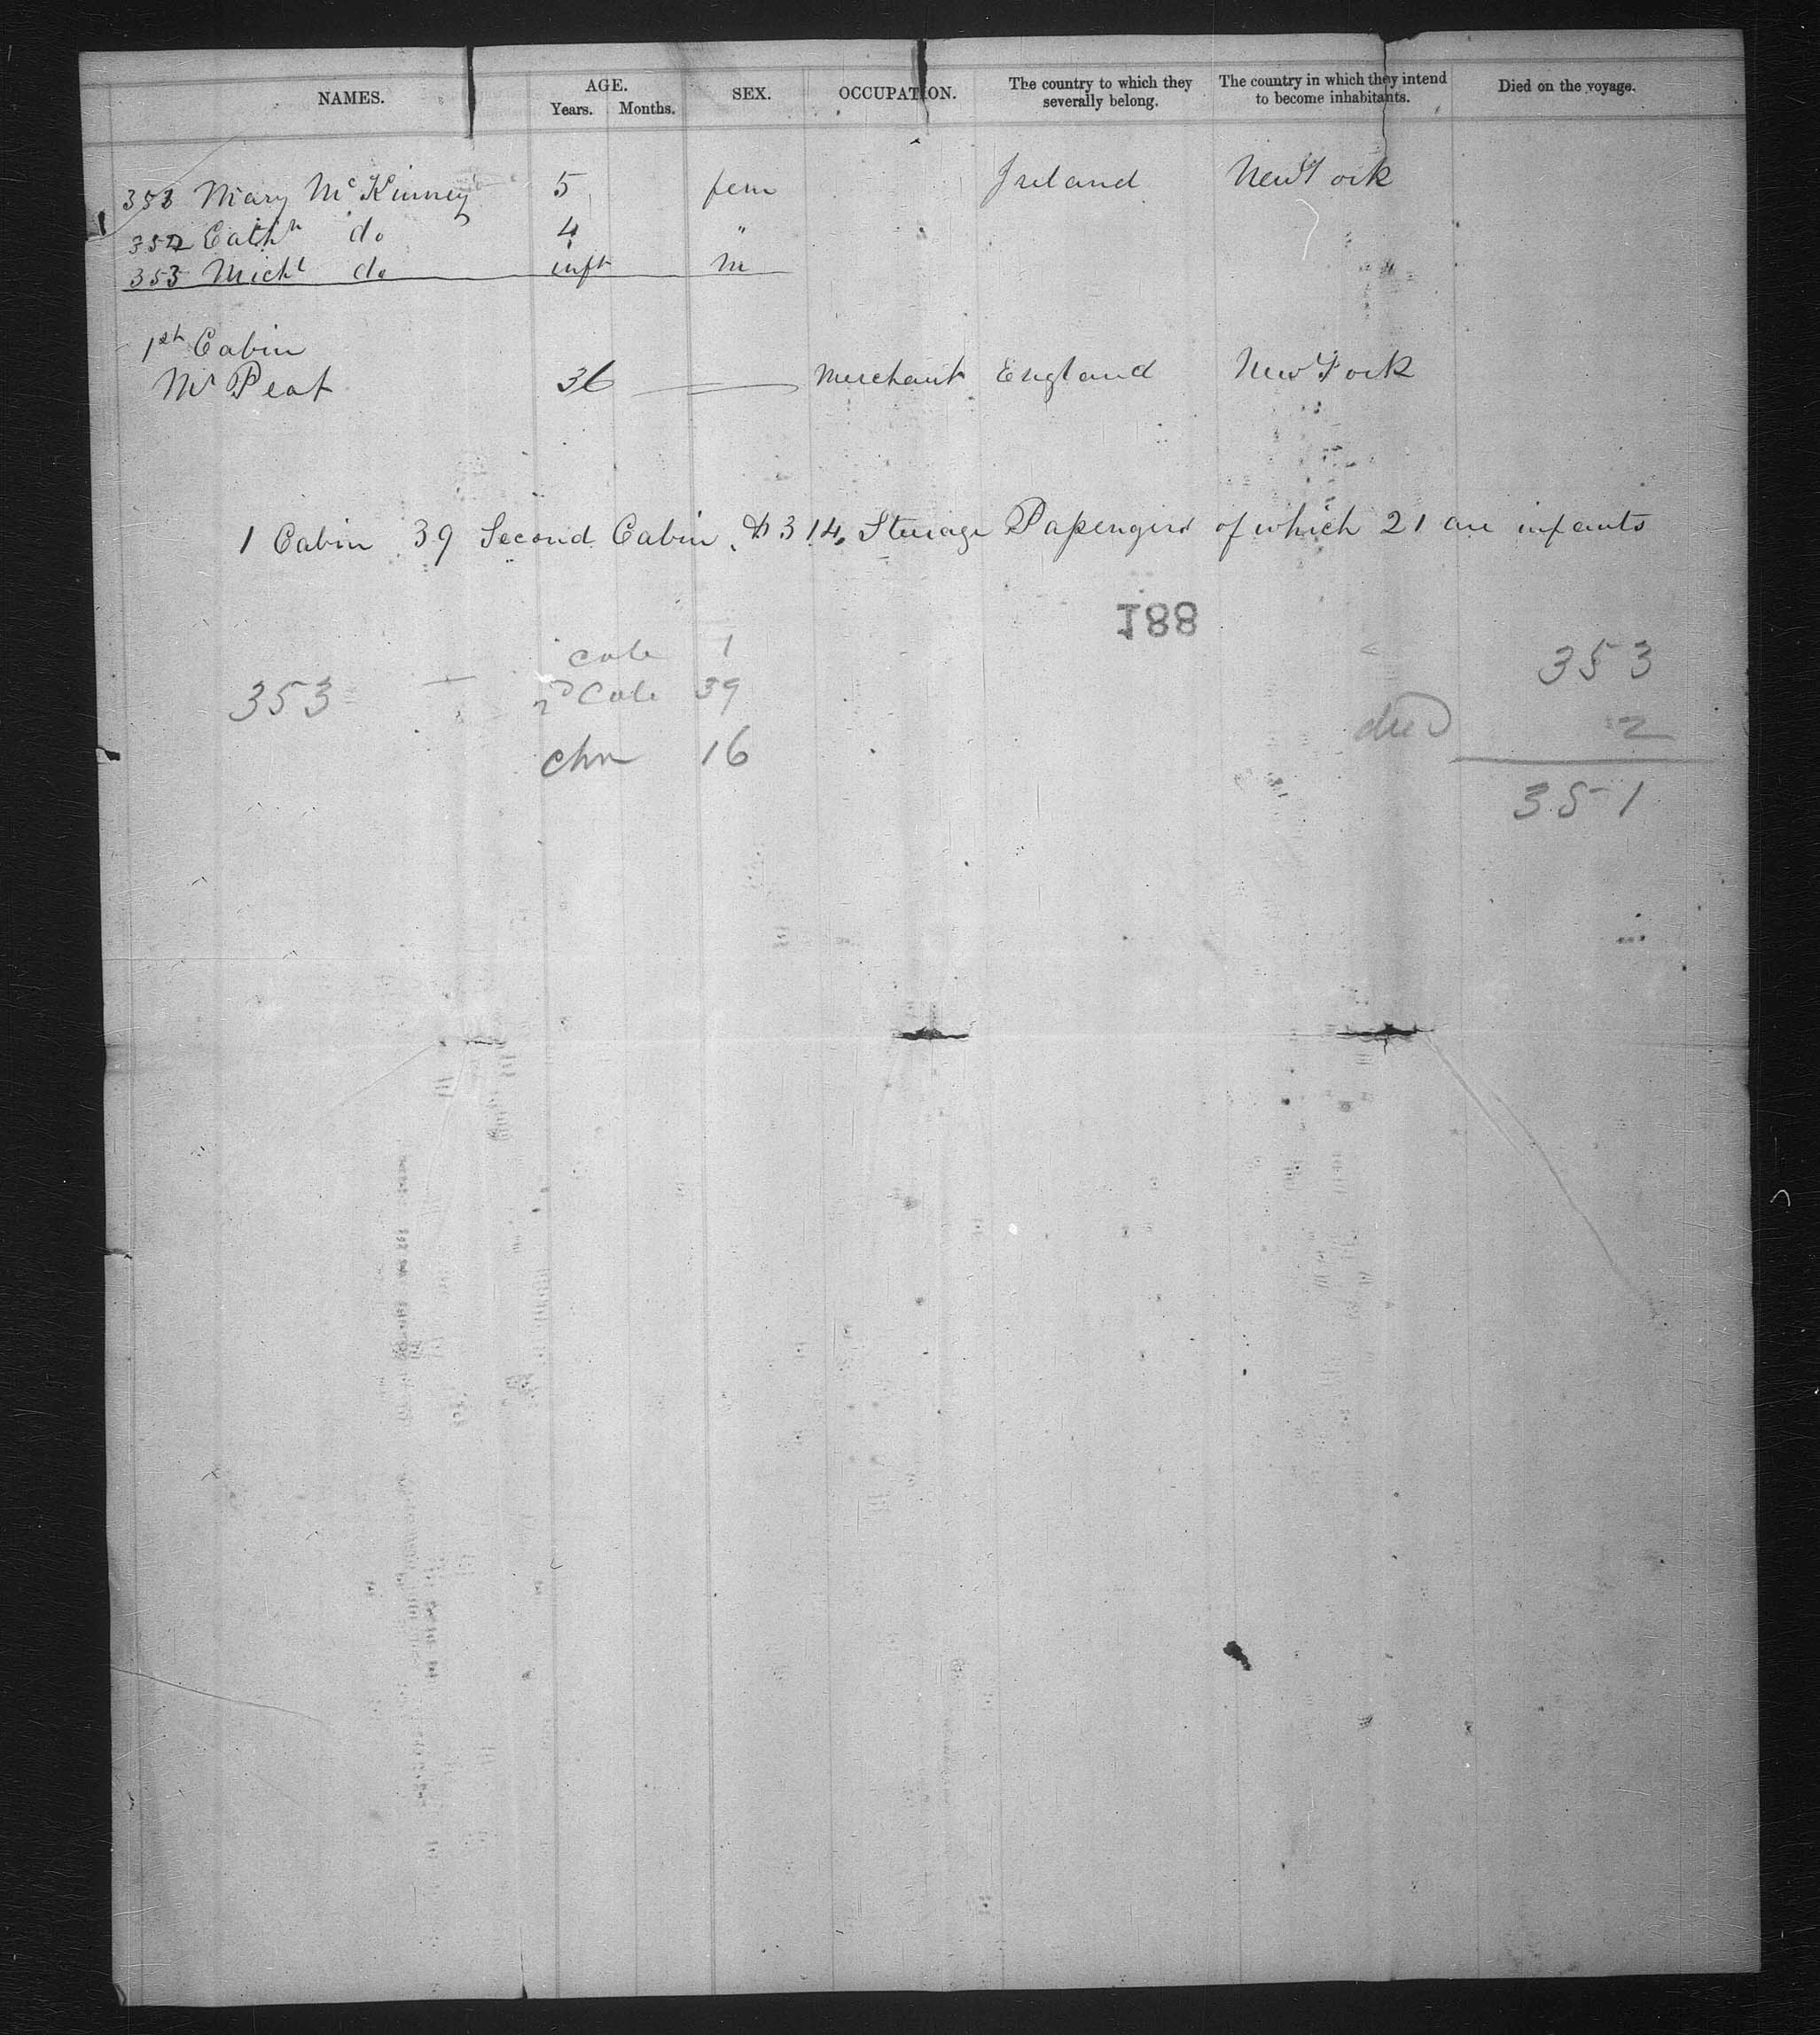 NAMES. AGE. Years. Months. SEX. OCCUPATION. The country to which they severally belong. The country in which they intend to become inhabitants. Died on the voyage.
353 Mary McKinney 5 fem Ireland New York
352 Cathn do 4 "
353 Michl do inft m
1st Cabin
Mr Peat 36 Merchant England New York
1 Cabin 39 Second Cabin & 314 Steerage Passengers of which 21 are infants
188
cab 1
353 2d Cab 39
chn 16
353
died 2
351